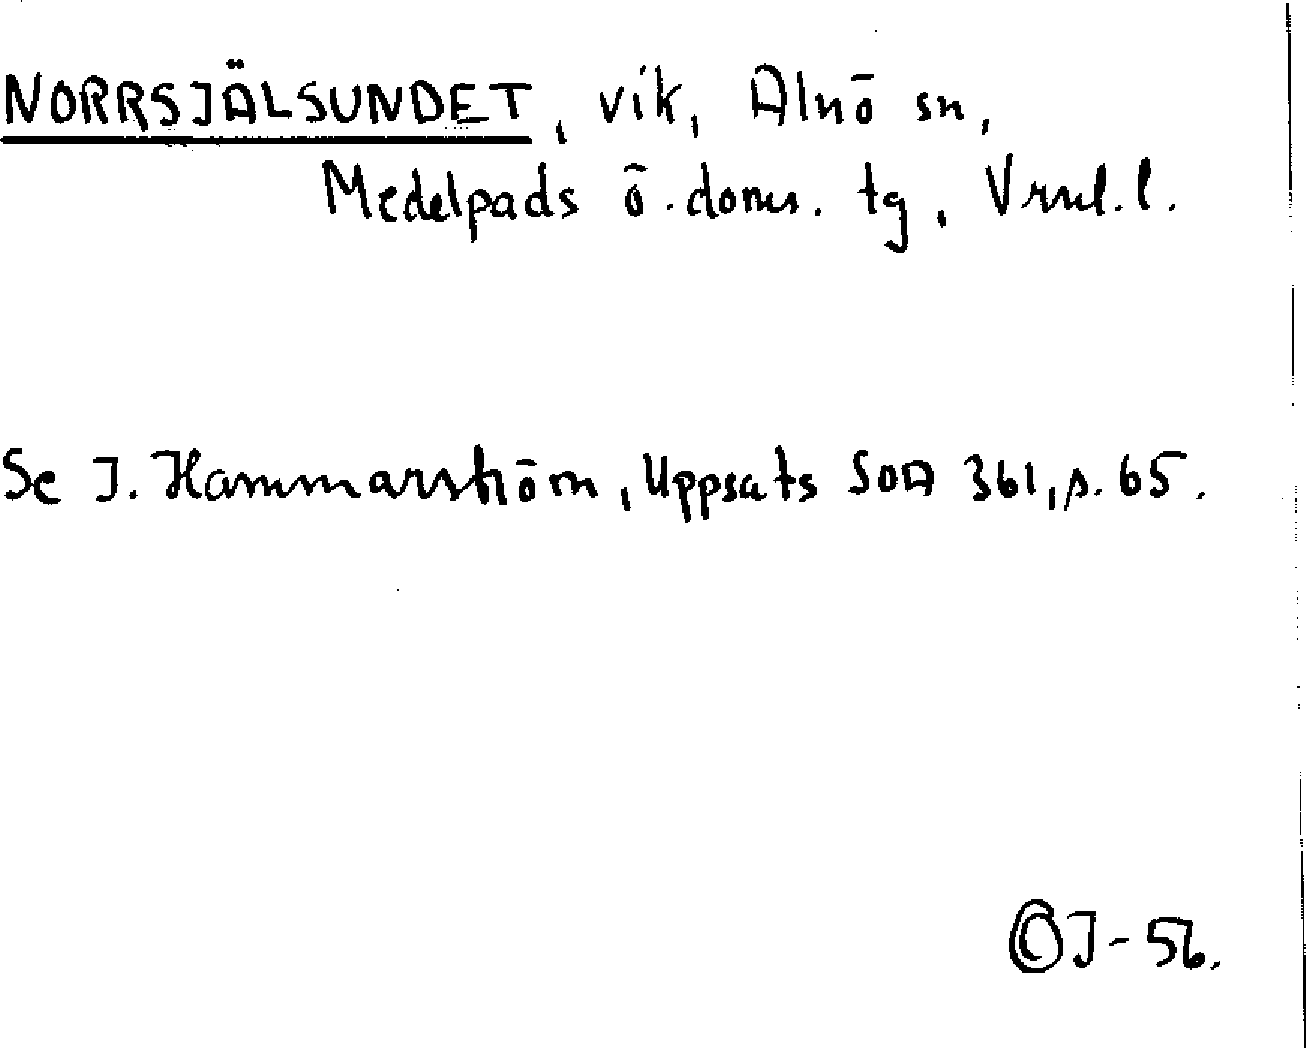 NORRSJÄLSUNDET, vik, Alnö sn,
Medelpads ö. doms. tg, Vrnl. l.
Se J. Hammarström, Uppsats SOA 361, s. 65.
©J-56.